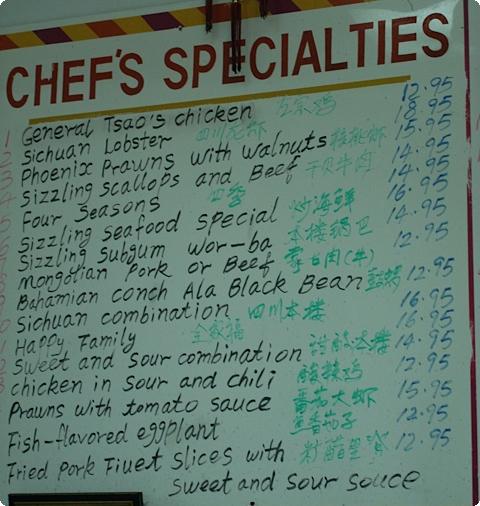 CHEF'S SPECIALTIES
General Tsao's chicken 左宗鸡 12.95
Sichuan Lobster 四川龙虾 18.95
Phoenix Prawns with walnuts 核桃虾 15.95
Sizzling scallops and Beef 干贝牛肉 14.95
Four Seasons 四季 14.95
Sizzling seafood special 炒海鲜 16.95
Sizzling Subgum wor-ba 本楼锅巴 14.95
Mongolian Pork or Beef 蒙古肉(牛) 12.95
Bahamian conch Ala Black Bean 12.95
Sichuan combination 四川本楼 16.95
Happy Family 全家福 16.95
Sweet and Sour combination 甜酸本楼 14.95
chicken in Sour and chili 酸辣鸡 12.95
Prawns with tomato sauce 番茄大虾 15.95
Fish-flavored eggplant 鱼番茄子 12.95
Fried Pork Fiuet Slices with 12.95
Sweet and Sour Souce